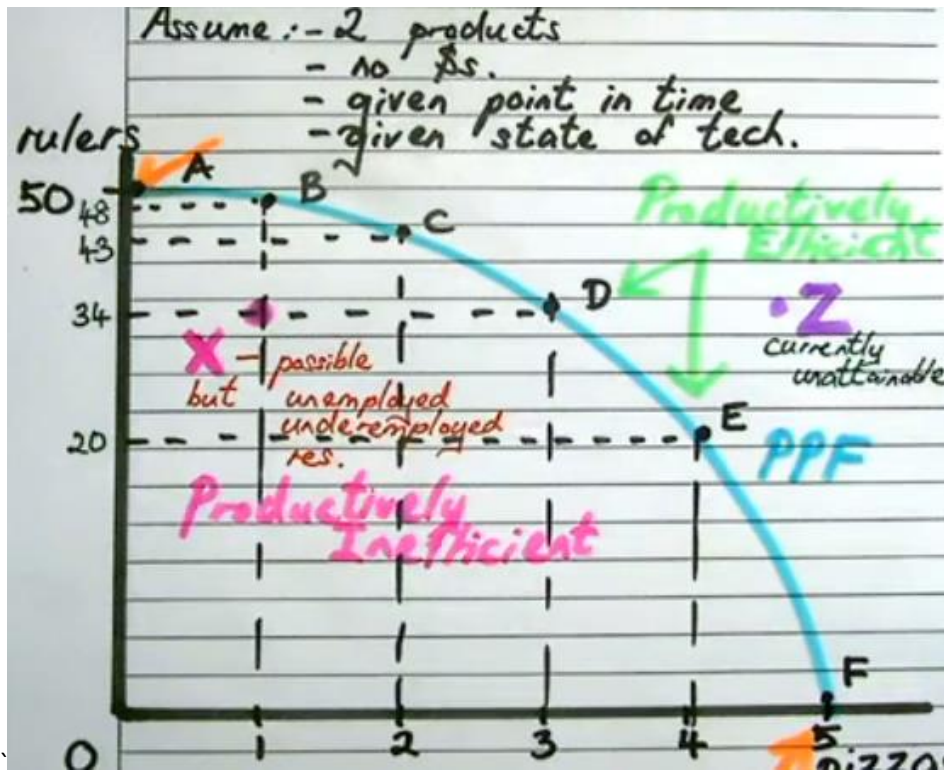 Assume :- 2 products
- no $s.
- given point in time
- given state of tech.
rulers
A
50
B
48
C
43
Productively
Efficient
D
34
Z
currently
unattainable
X - possible
but unemployed
underemployed
res.
E
20
PPF
Productively
Inefficient
F
0 1 2 3 4 5
pizzas